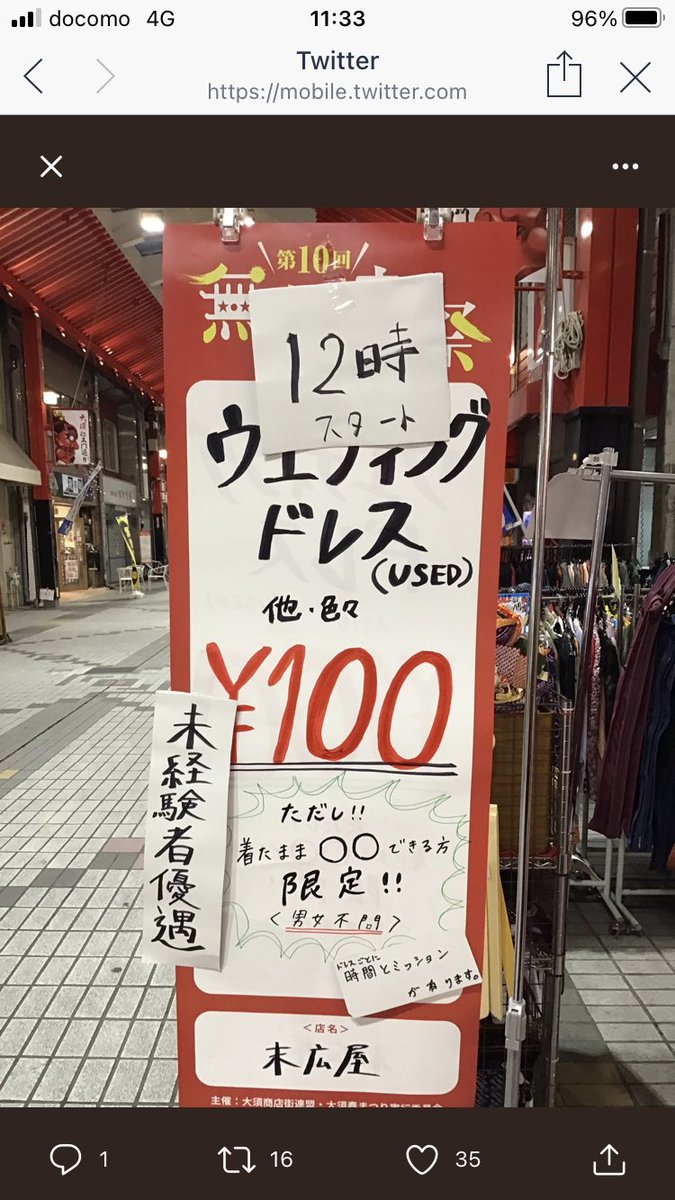 docomo 4G 11:33 96%
Twitter
https://mobile.twitter.com
第10回
無
祭
12時
スタート
ウエディング
ドレス
(USED)
他・色々
¥100
未経験者優遇
ただし!!
着たまま○○できる方
限定!!
<男女不問>
ドレスごとに
時間とミッション
が有ります。
<店名>
末広屋
主催:大須商店街連盟・大須春まつり実行委員会
1 16 35